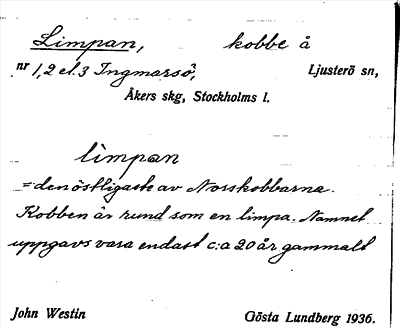 Limpan, kobbe å
nr 1, 2 el. 3 Ingmarsö, Ljusterö sn,
Åkers skg, Stockholms l.
limpan
= den östligaste av Norskobbarna.
Kobben är rund som en limpa. Namnet
uppgavs vara endast c:a 20 år gammalt
John Westin Gösta Lundberg 1936.